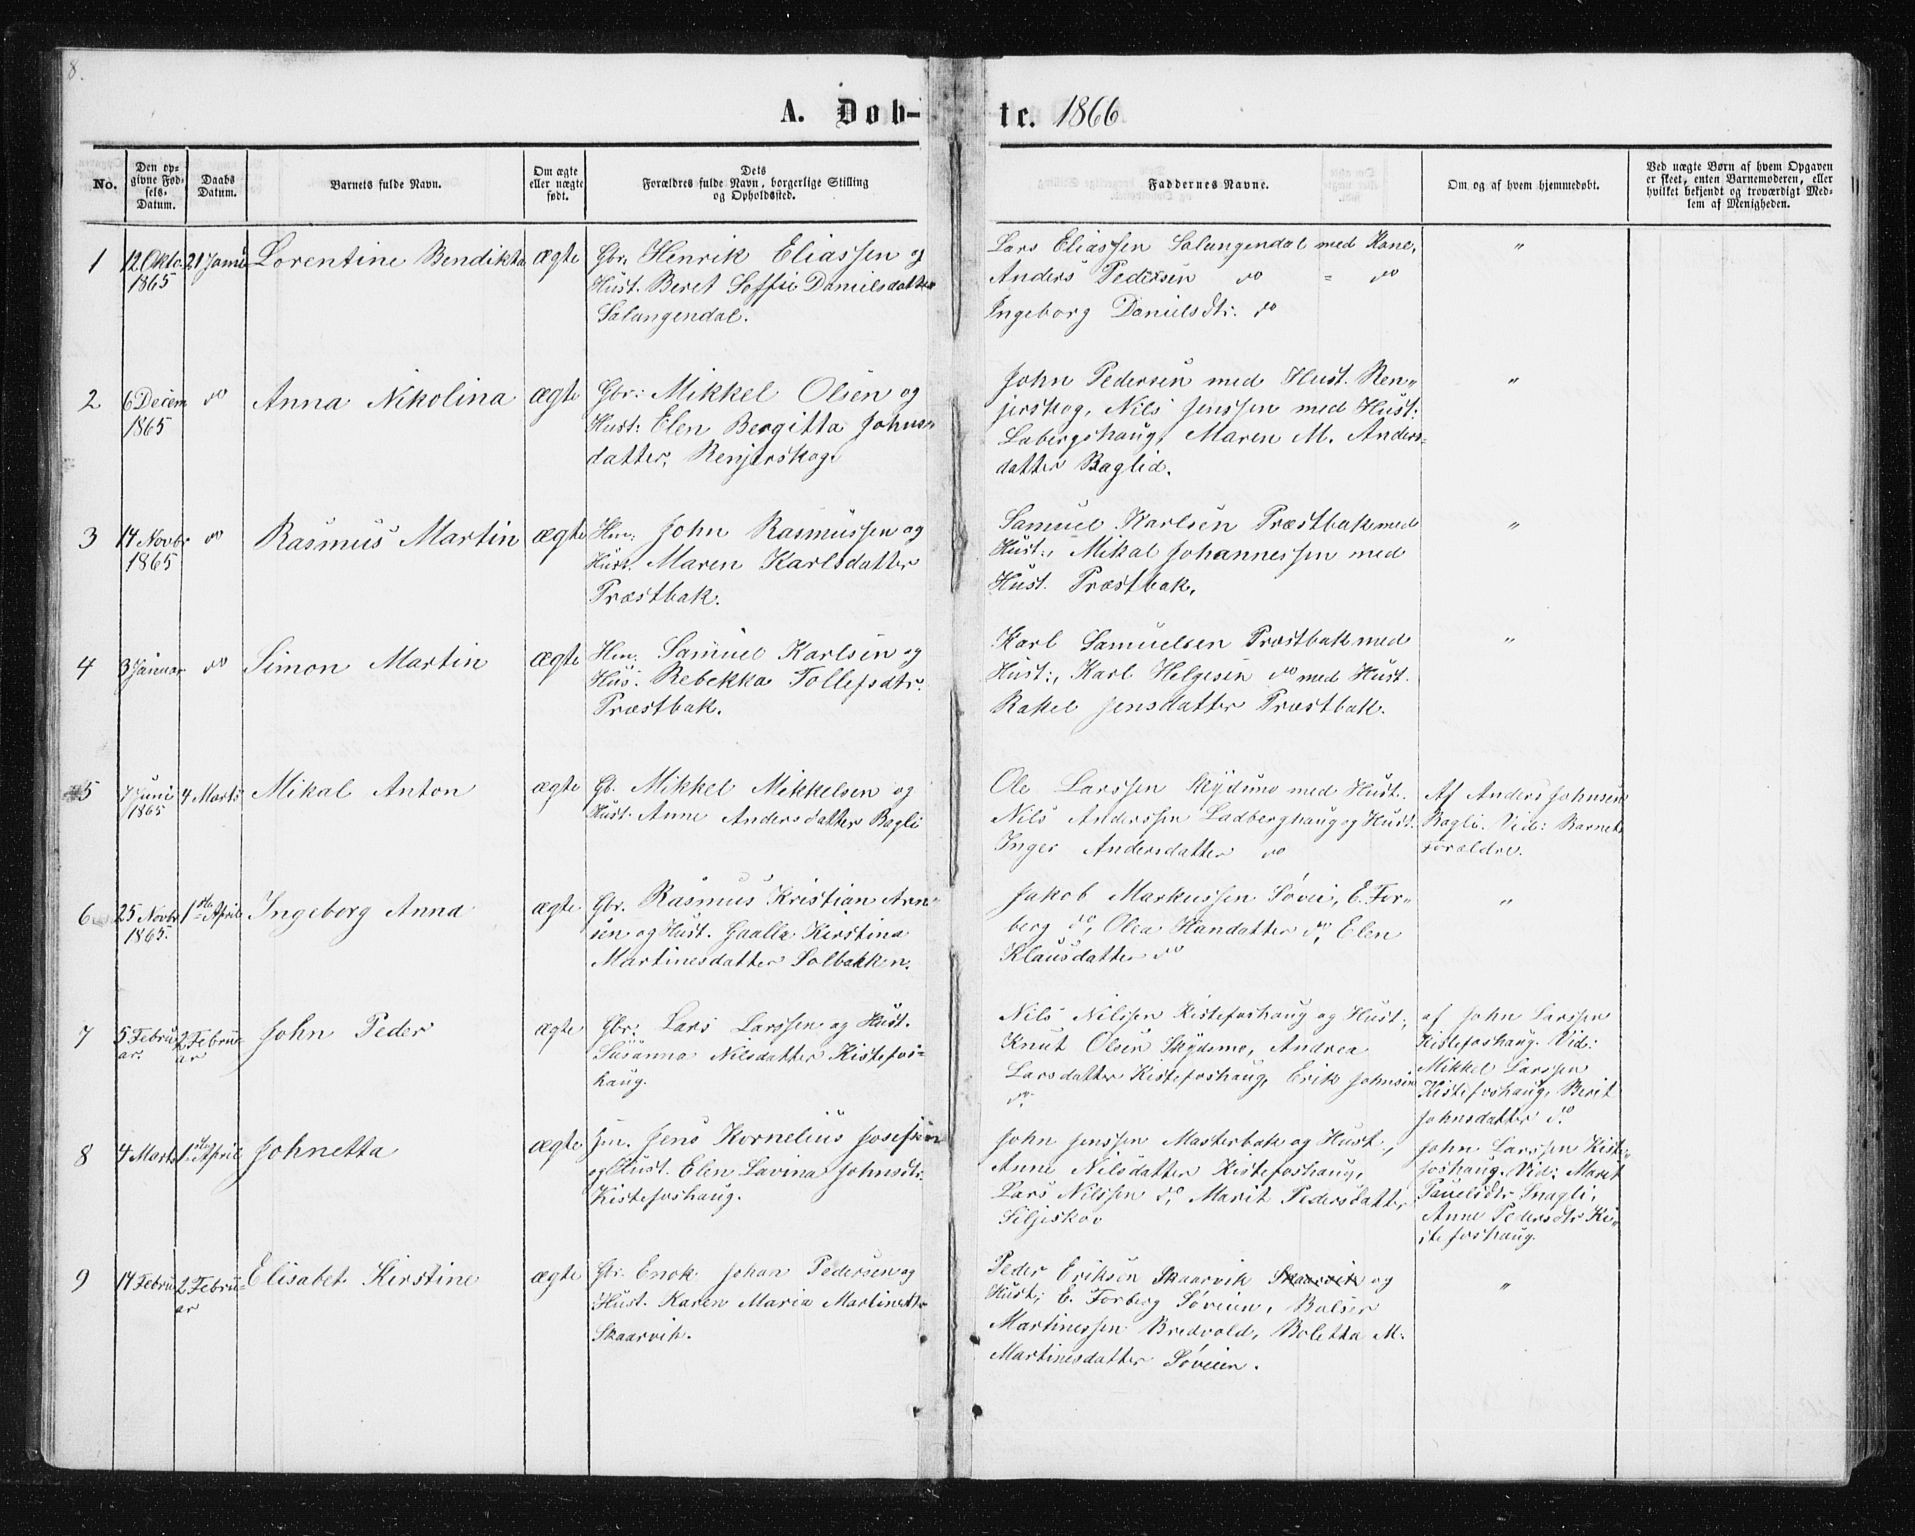 8.
A. Døb-
te. 1866
No.
Den op-
givne Fød-
sels-
Datum.
Daabs
Datum.
Barnets fulde Navn.
Om ægte
eller uægte
født.
Dets
Forældres fulde Navn, borgerlige Stilling
og Opholdssted.
Faddernes Navne.
Om og af hvem hjemmedøbt.
Ved uægte Børn af hvem Opgaven
er skeet, enten Barnemoderen, eller
hvilket bekjendt og troværdigt Med-
lem af Menigheden.
1
12 Oktb.
1865
21 Janu
Lorentine Bendikta
ægte
Gbr. Henrik Eliassen og
Hust. Beret Soffie Danielsdatter
Salangendal.
Lars Eliassen Salangendal med Kone,
Anders Pedersen do = do
Ingeborg Danielsdtr. do
"
2
6 Decem
1865
do
Anna Nikolina
ægte
Gbr: Mikkel Olsen og
Hust: Elen Bergitta Johns-
datter, Renjerskog.
John Pedersen med Hust. Ren-
jerskog, Nils Jenssen med Hust:
Labergshaug, Maren M. Anders-
datter Baglid.
"
3
14 Novbr
1865
do
Rasmus Martin
ægte
Hm: John Rasmussen og
Hust. Maren Karlsdatter
Præstbak.
Samuel Karlsen Præstbak med
Hust:, Mikal Johannessen med
Hust. Præstbak.
"
4
3 Januar
do
Simon Martin
ægte
Hm: Samuel Karlsen og
Hus. Rebekka Tollefsdtr.
Præstbak.
Karl Samuelsen Præstbak med
Hust:, Karl Helgesen do med Hust.
Rakel Jensdatter Præstbak.
"
5
7 Juni
1865
4 Marts
Mikal Anton
ægte
Gb. Mikkel Mikkelsen og
Hust. Anne Andersdatter Bagli
Ole Larssen Skydsmo med Hust.
Nils Anderssen Ladberghaug og Hust.
Inger Andersdatter do
Af Anders Johnsen
Bagli. Vid: Barnets
forældre.
6
25 Novbr
1865.
1ste April
Ingeborg Anna
ægte
Gbr. Rasmus Kristian Arn-
sen og Hust. Gaalla Kirstina
Martinesdatter Solbakken.
Jakob Markussen Søvei, E. For-
berg do, Olea Handatter do, Elen
Klausdatter do
"
7
5 Febru-
ar.
2 Febru-
ar
John Peder
ægte
Gbr. Lars Larssen og Hust.
Susanna Nilsdatter Kistefos-
haug.
Nils Nilssen Kistefoshaug og Hust.,
Knut Olsen Skydsmo, Andrea
Larsdatter Kistefoshaug, Erik Johnsen
do.
af John Larssen
Kistefoshaug. Vid:
Mikkel Larssen
Kistefoshaug, Berit
Johnsdatter do
8
4 Marts
1ste April
Johnetta
ægte
Jens Kornelius Josefsen
og Hust. Elen Lavina Johnsdtr.
Kistefoshaug.
John Jenssen Masterbak og Hust.,
Anne Nilsdatter Kistefoshaug,
Lars Nilssen do, Marit Pedersdatter
Siljeskov
John Larssen Kiste-
foshaug. Vid: Marit
Paulsdtr Snagli,
Anne Pedersdtr Ki-
stefoshaug.
9
14 Febru
2 Febru-
ar
Elisabet Kirstine
ægte
Gbr. Enok Johan Pedersen og
Hust. Karen Maria Martinsdtr
Skaarvik.
Peder Eriksen Skaarvik Skaarvik og
Hust; E. Forberg Søveien, Balser
Martinessen Bredvold, Boletta M.
Martinesdatter Søveien.
"